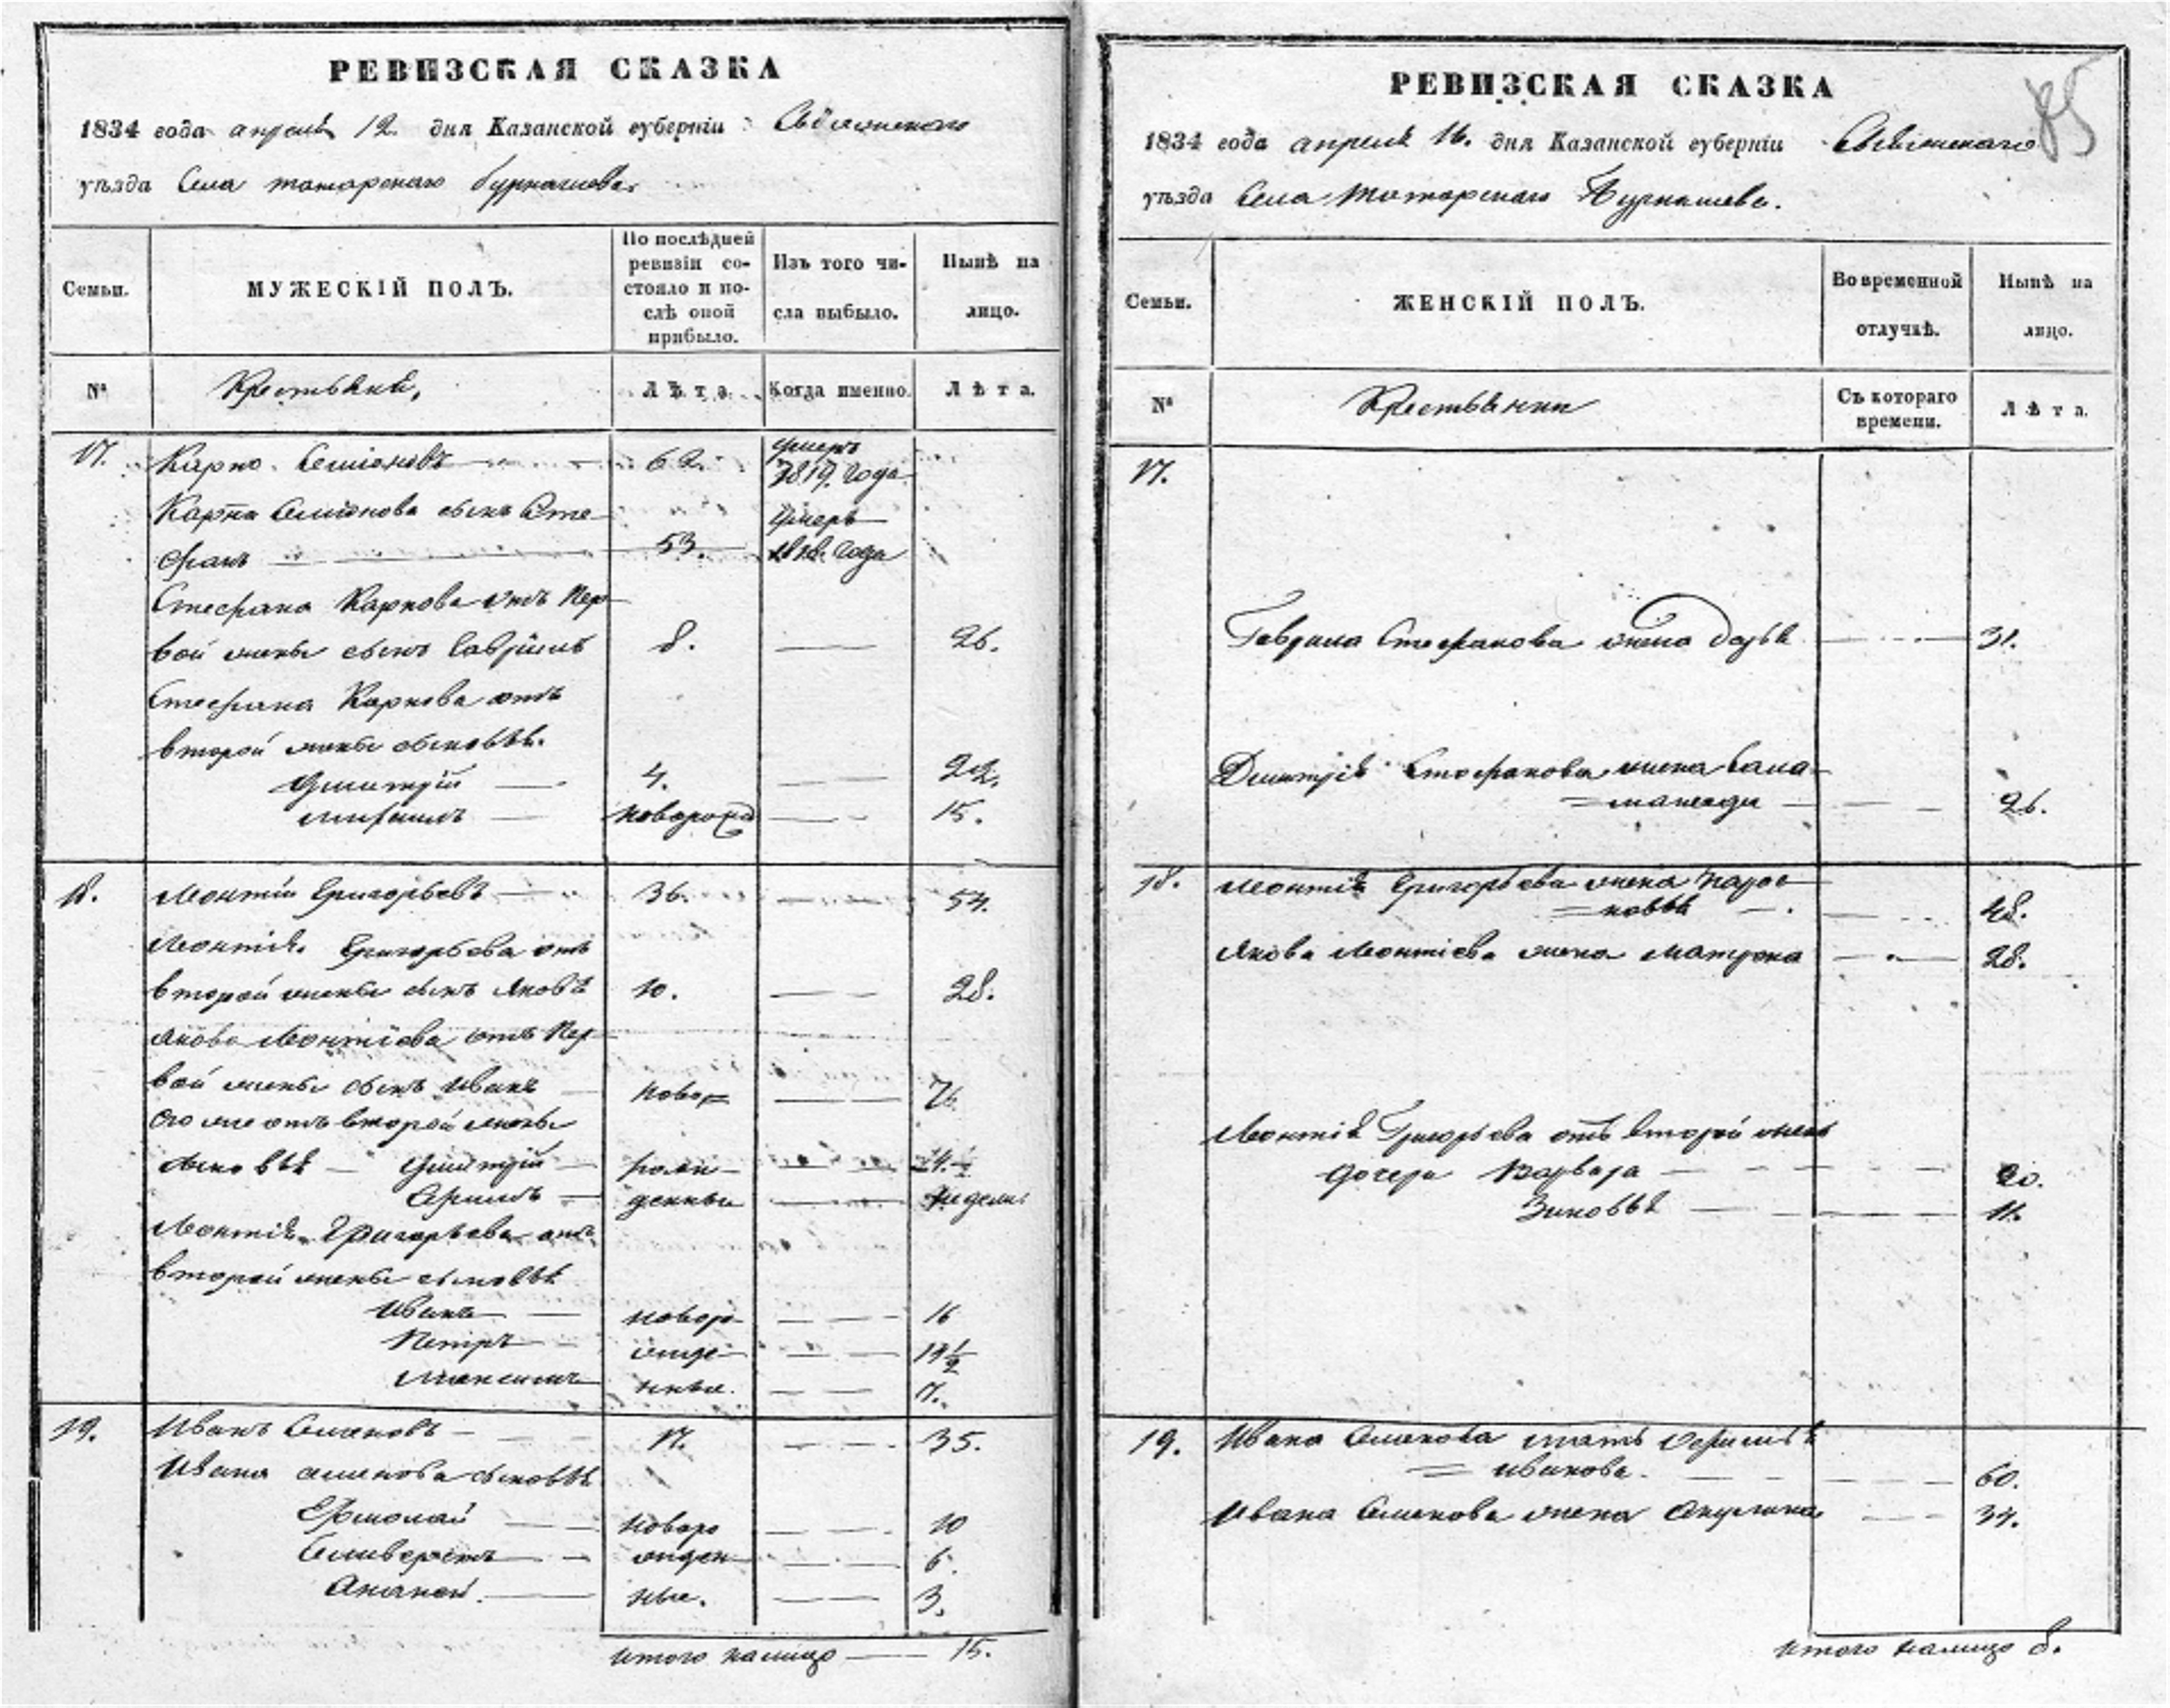 РЕВИЗСКАЯ СКАЗКА
1834 года апреля 12. дня Казанской губерніи Свіяжскаго
уѣзда Села татарскаго бурнашева.
Семьи.
МУЖЕСКІЙ ПОЛЪ.
По послѣдней
ревизіи со-
стояло и по-
слѣ оной
прибыло.
Изъ того чи-
сла выбыло.
Нынѣ на
лицо.
№
Крестьяне,
Лѣта.
Когда именно.
Лѣта.
17. Карпъ Семіоновъ 62. умеръ
1819. года
Карпа Семіонова сынъ Сте-
фанъ 53. умеръ
года
Стефана Карпова отъ пер-
вой жены сынъ Гаврилъ 8. — 26.
Стефана Карпова отъ
второй жены сыновья.
Дмитрій — 4. — 22.
новорожд — 15.
18. Леонтій Григорьевъ — 36. — 54.
Леонтія Григорьева отъ
второй жены сынъ Яковъ 10. — 28.
Якова Леонтіева отъ пер-
вой жены сынъ Иванъ — ново=
его же отъ второй жены
сыновья — Дмитрій — рож-
— денные — недель
Леонтія Григорьева отъ
второй жены сыновья
Иванъ — новоро- — 16
Петръ — жде- — 14½
Максимъ нные. — 7.
19. Иванъ Семеновъ — 17. — 35.
Ивана семенова сыновья
Ермолай — новоро — 10
Селиверстъ — жден — 6.
Ананей. — ные. — 3.
итого налицо — 15.
РЕВИЗСКАЯ СКАЗКА
85
1834 года апреля 16. дня Казанской губерніи Свіяжскаго
уѣзда Села Татарскаго Бурнашева.
Семьи.
ЖЕНСКІЙ ПОЛЪ.
Во временной
отлучкѣ.
Нынѣ на
лицо.
№
Крестьянки
Съ котораго
времени.
Лѣта.
17.
Гаврила Стефанова жена Дарья — 31.
Дмитрія Стефанова жена Сала-
=манеяда — 26.
18. Леонтія Григорьева жена Парос-
=ковья — 48.
Якова Леонтіева жена Матрона — 28.
Леонтія Григорьева отъ второй жены
дочери Варвара — 20.
Зиновья — 11.
19. Ивана Семенова мать
= иванова. — 60.
Ивана Семенова жена Акулина — 34.
итого налицо 8.